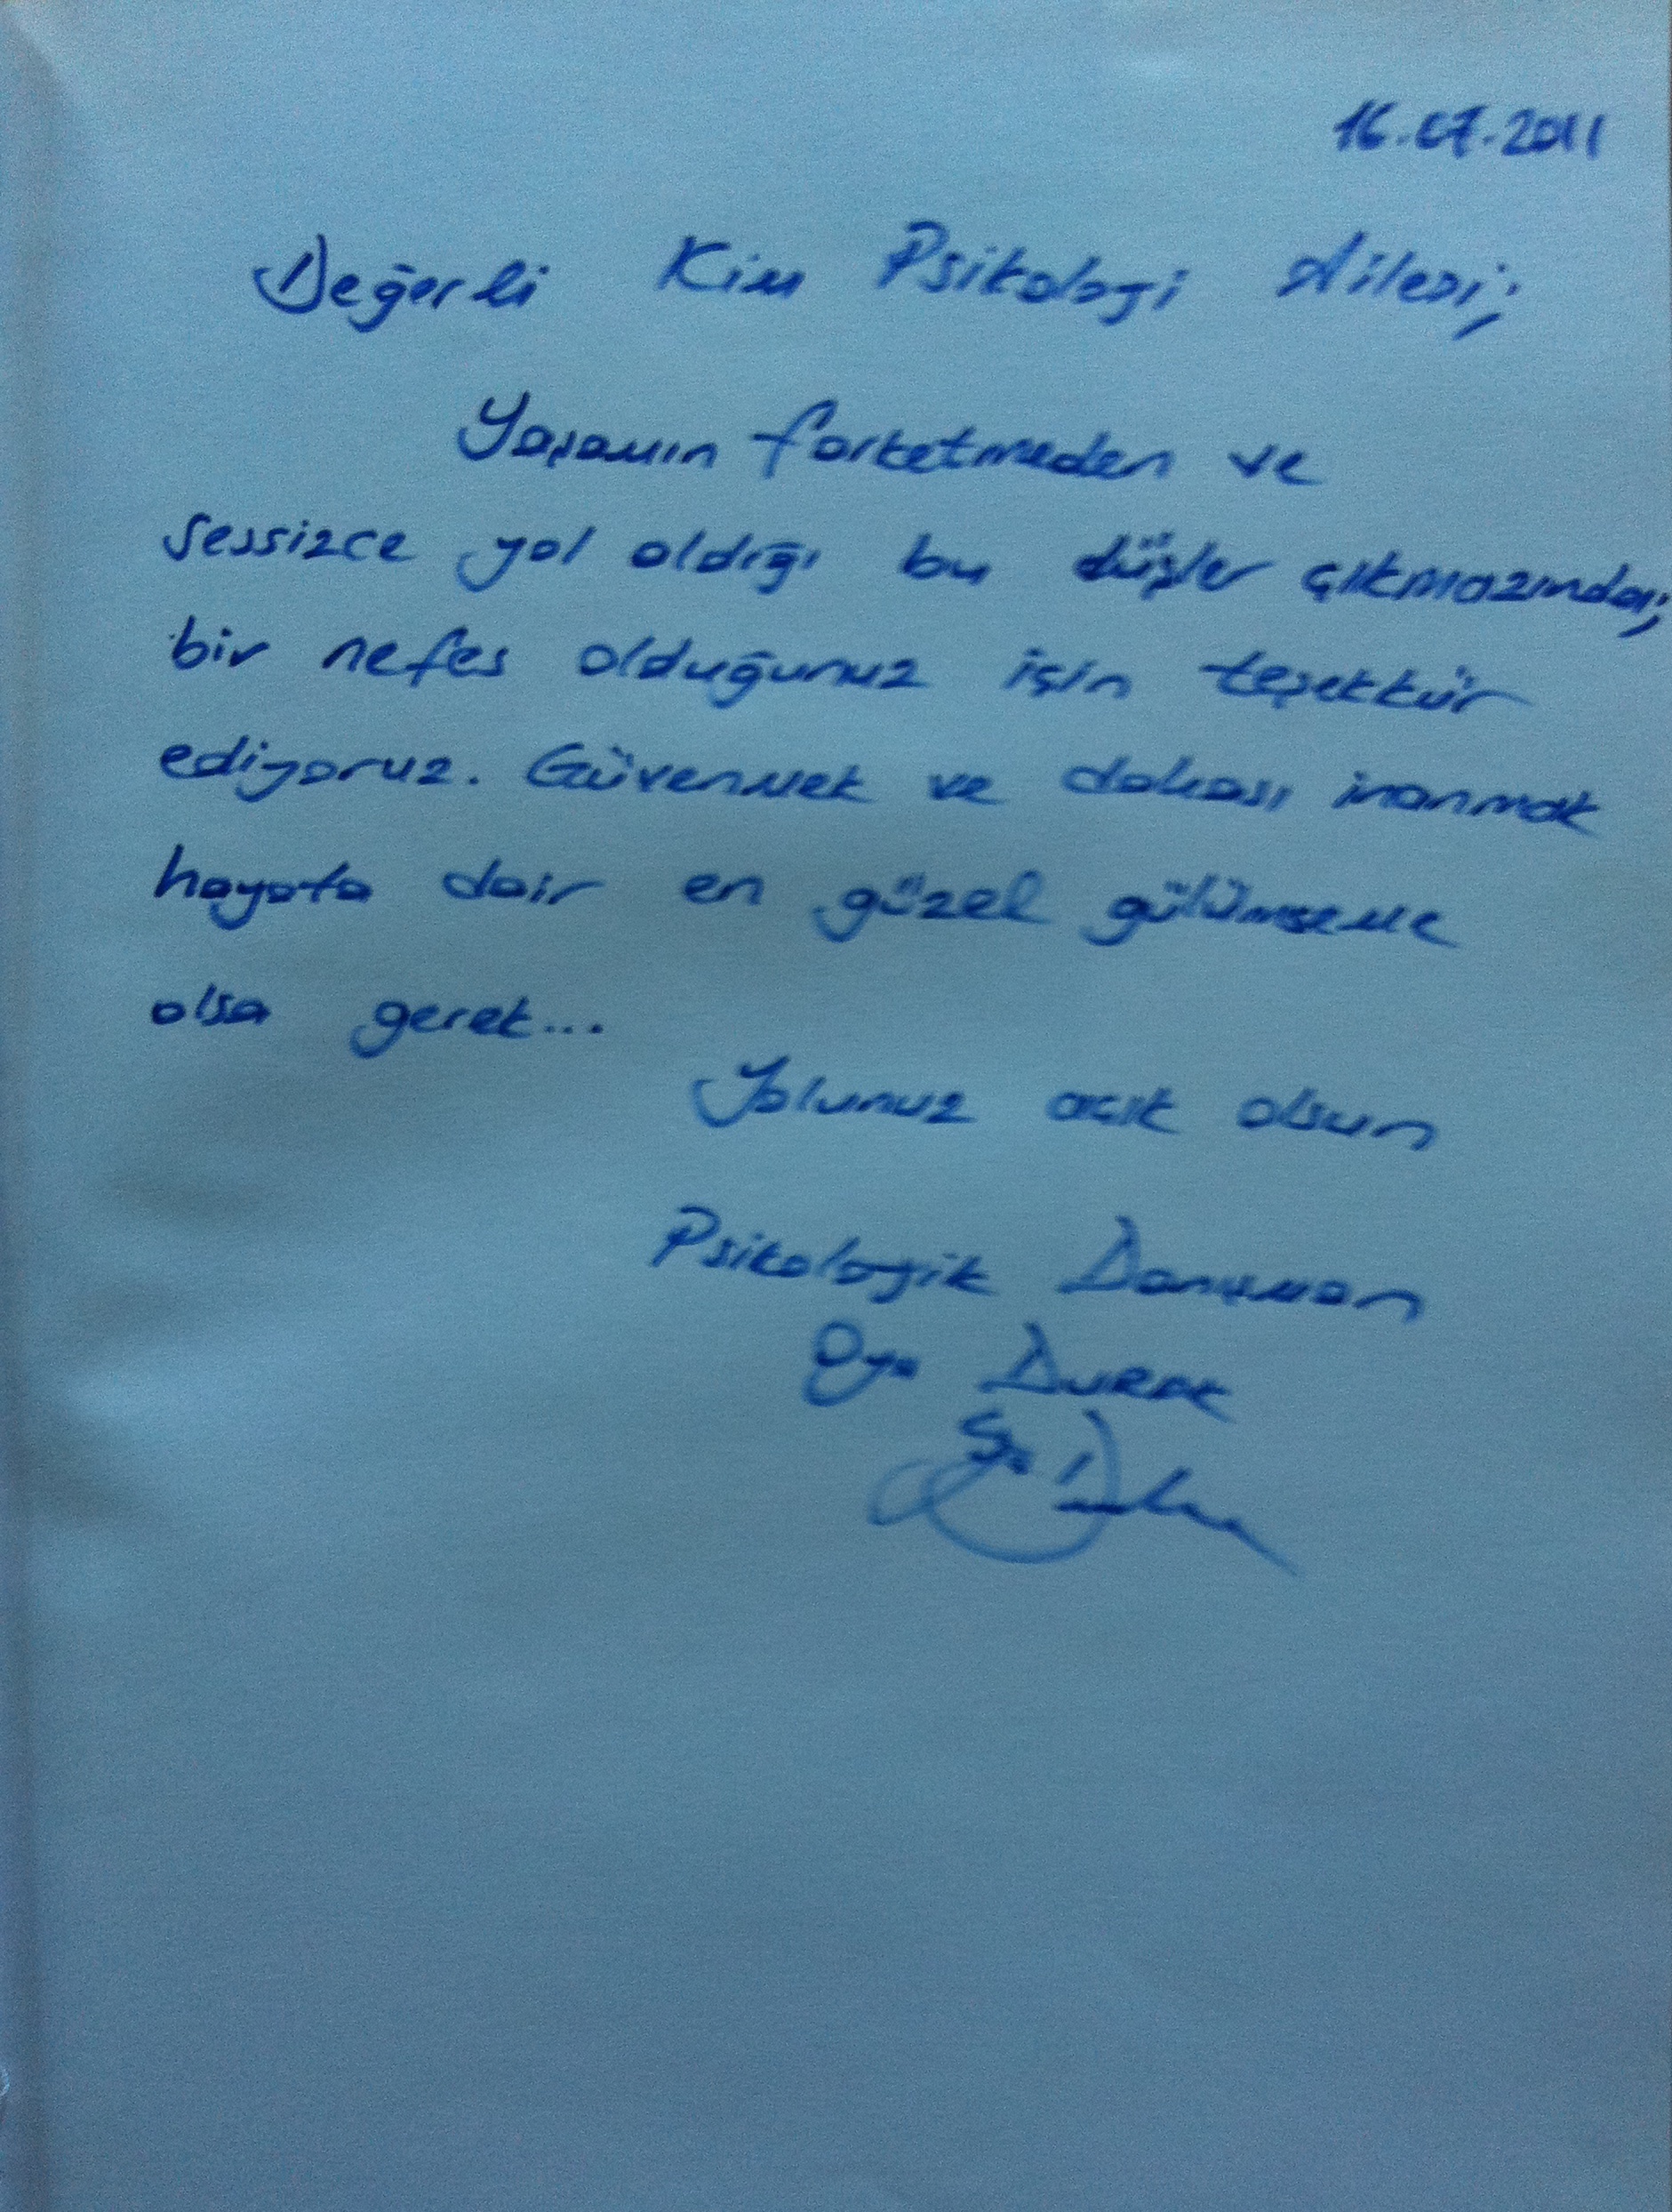 16.07.2011
Değerli Kim Psikoloji Ailesi;
Yaşamın farketmeden ve
sessizce yol aldığı bu düşler çıkmazında;
bir nefes olduğunuz için teşekkür
ediyoruz. Güvenmek ve dahası inanmak
hayata dair en güzel gülümseme
olsa gerek...
Yolunuz açık olsun
Psikolojik Danışman
Oya DURAK